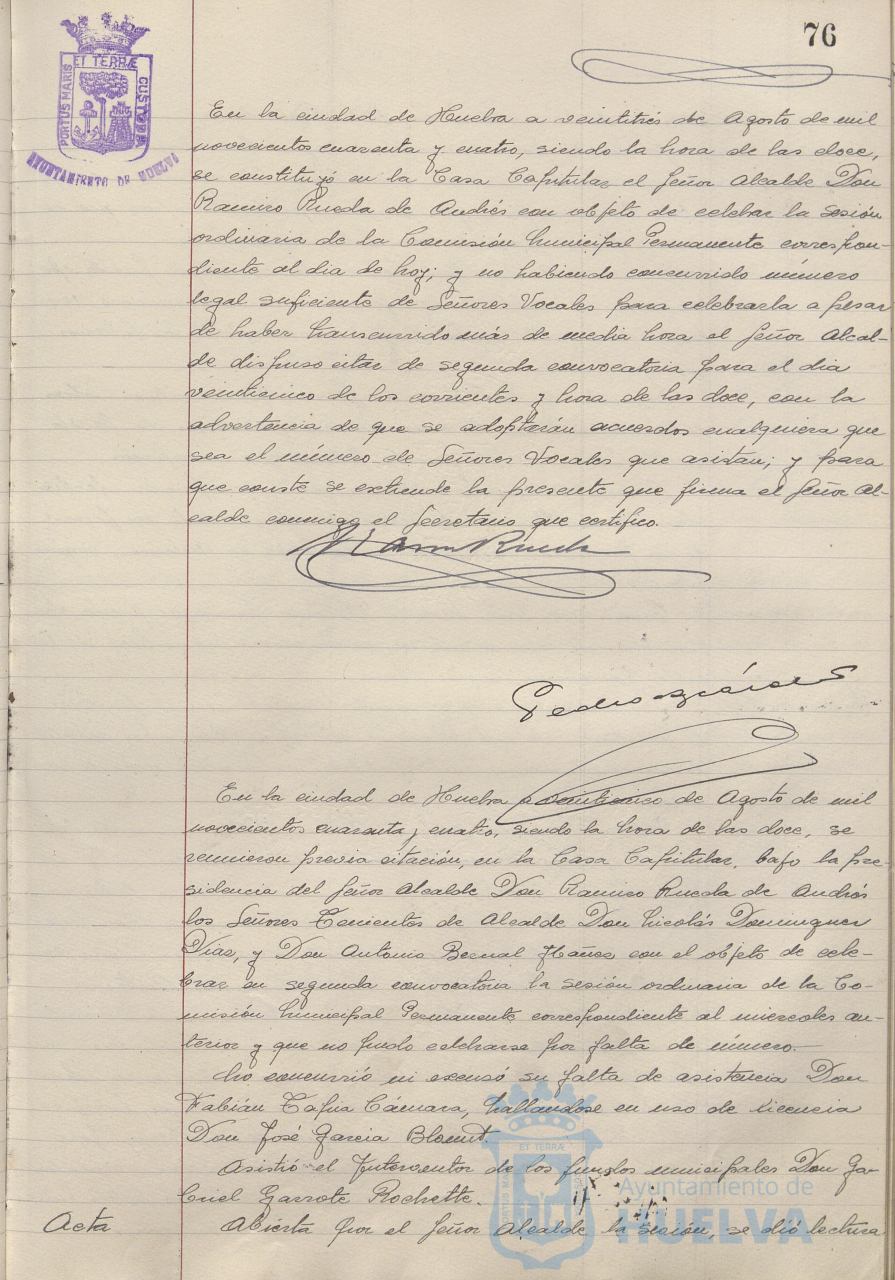 76
ET TERRÆ
PORTUS MARIS
CUSTODIA
AYUNTAMIENTO DE HUELVA
En la ciudad de Huelva a veintitrés de Agosto de mil
novecientos cuarenta y cuatro, siendo la hora de las doce,
se constituyó en la Casa Capitular el Señor Alcalde Don
Ramiro Rueda de Andrés con objeto de celebrar la sesión
ordinaria de la Comisión Municipal Permanente correspon-
diente al dia de hoy; y no habiendo concurrido número
legal suficiente de Señores Vocales para celebrarla a pesar
de haber transcurrido más de media hora el Señor Alcal-
de dispuso citar de segunda convocatoria para el dia
veinticinco de los corrientes y hora de las doce, con la
advertencia de que se adoptarán acuerdos cualquiera que
sea el número de Señores Vocales que asistan; y para
que conste se extiende la presente que firma el Señor Al-
calde conmigo el Secretario que certifico.
Rueda
Pedro
En la ciudad de Huelva a veinticinco de Agosto de mil
novecientos cuarenta y cuatro, siendo la hora de las doce, se
reunieron previa citación, en la Casa Capitular, bajo la pre-
sidencia del Señor Alcalde Don Ramiro Rueda de Andrés
los Señores Tenientes de Alcalde Don Nicolás Dominguez
Dias, y Don Antonio Bernal Ibáñez con el objeto de cele-
brar en segunda convocatoria la sesión ordinaria de la Co-
misión Municipal Permanente correspondiente al miercoles an-
terior y que no pudo celebrarse por falta de número.
No concurrió ni excusó su falta de asistencia Don
Fabián Tapia Cámara, hallandose en uso de licencia
Don José Garcia
Asistió el Interventor de los fondos municipales Don Ga-
briel Garrote Rochette.
Acta Abierta por el Señor Alcalde la sesión, se dió lectura
Ayuntamiento de
HUELVA